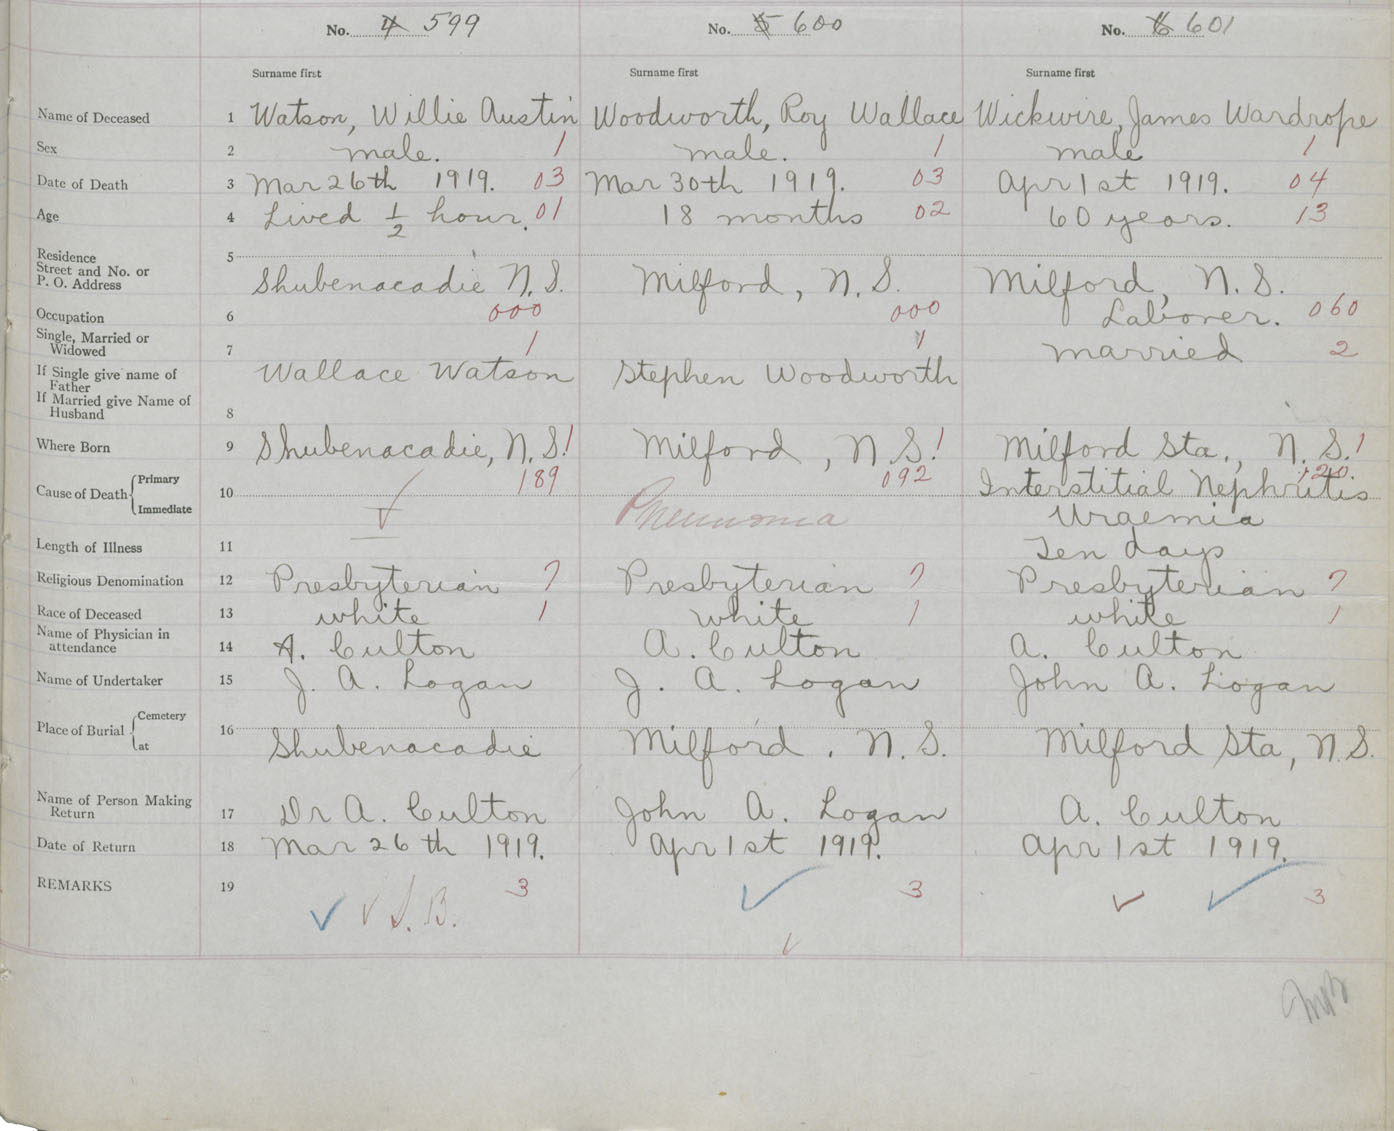 No. 4 599 No. 5 600 No. 6 601
Surname first Surname first Surname first
Name of Deceased 1 Watson, Willie Austin Woodworth, Roy Wallace Wickwire, James Wardrope
Sex 2 male. 1 male. 1 male 1
Date of Death 3 Mar 26th 1919. 03 Mar 30th 1919. 03 Apr 1st 1919. 04
Age 4 Lived 1/2 hour. 01 18 months 02 60 years. 13
Residence
Street and No. or
P. O. Address
5 Shubenacadie N.S. Milford, N.S. Milford, N.S.
Occupation 6 000 000 Laborer. 060
Single, Married or
Widowed
7 1 1 married 2
If Single give name of
Father
If Married give Name of
Husband
8 Wallace Watson Stephen Woodworth
Where Born 9 Shubenacadie, N.S. 1 Milford, N.S. 1 Milford Sta., N.S. 1
189 092 120.
Cause of Death Primary
Immediate
10 Interstitial Nephritis
Pneumonia Uraemia
Length of Illness 11 Ten days
Religious Denomination 12 Presbyterian 7 Presbyterian 7 Presbyterian 7
Race of Deceased 13 white 1 white 1 white 1
Name of Physician in
attendance
14 A. Culton A. Culton A. Culton
Name of Undertaker 15 J. A. Logan J. A. Logan John A. Logan
Place of Burial Cemetery
at
16 Shubenacadie Milford, N.S. Milford Sta, N.S.
Name of Person Making
Return
17 Dr A. Culton John A. Logan A. Culton
Date of Return 18 Mar 26th 1919. Apr 1st 1919. Apr 1st 1919.
REMARKS 19 3 3 3
S.B.